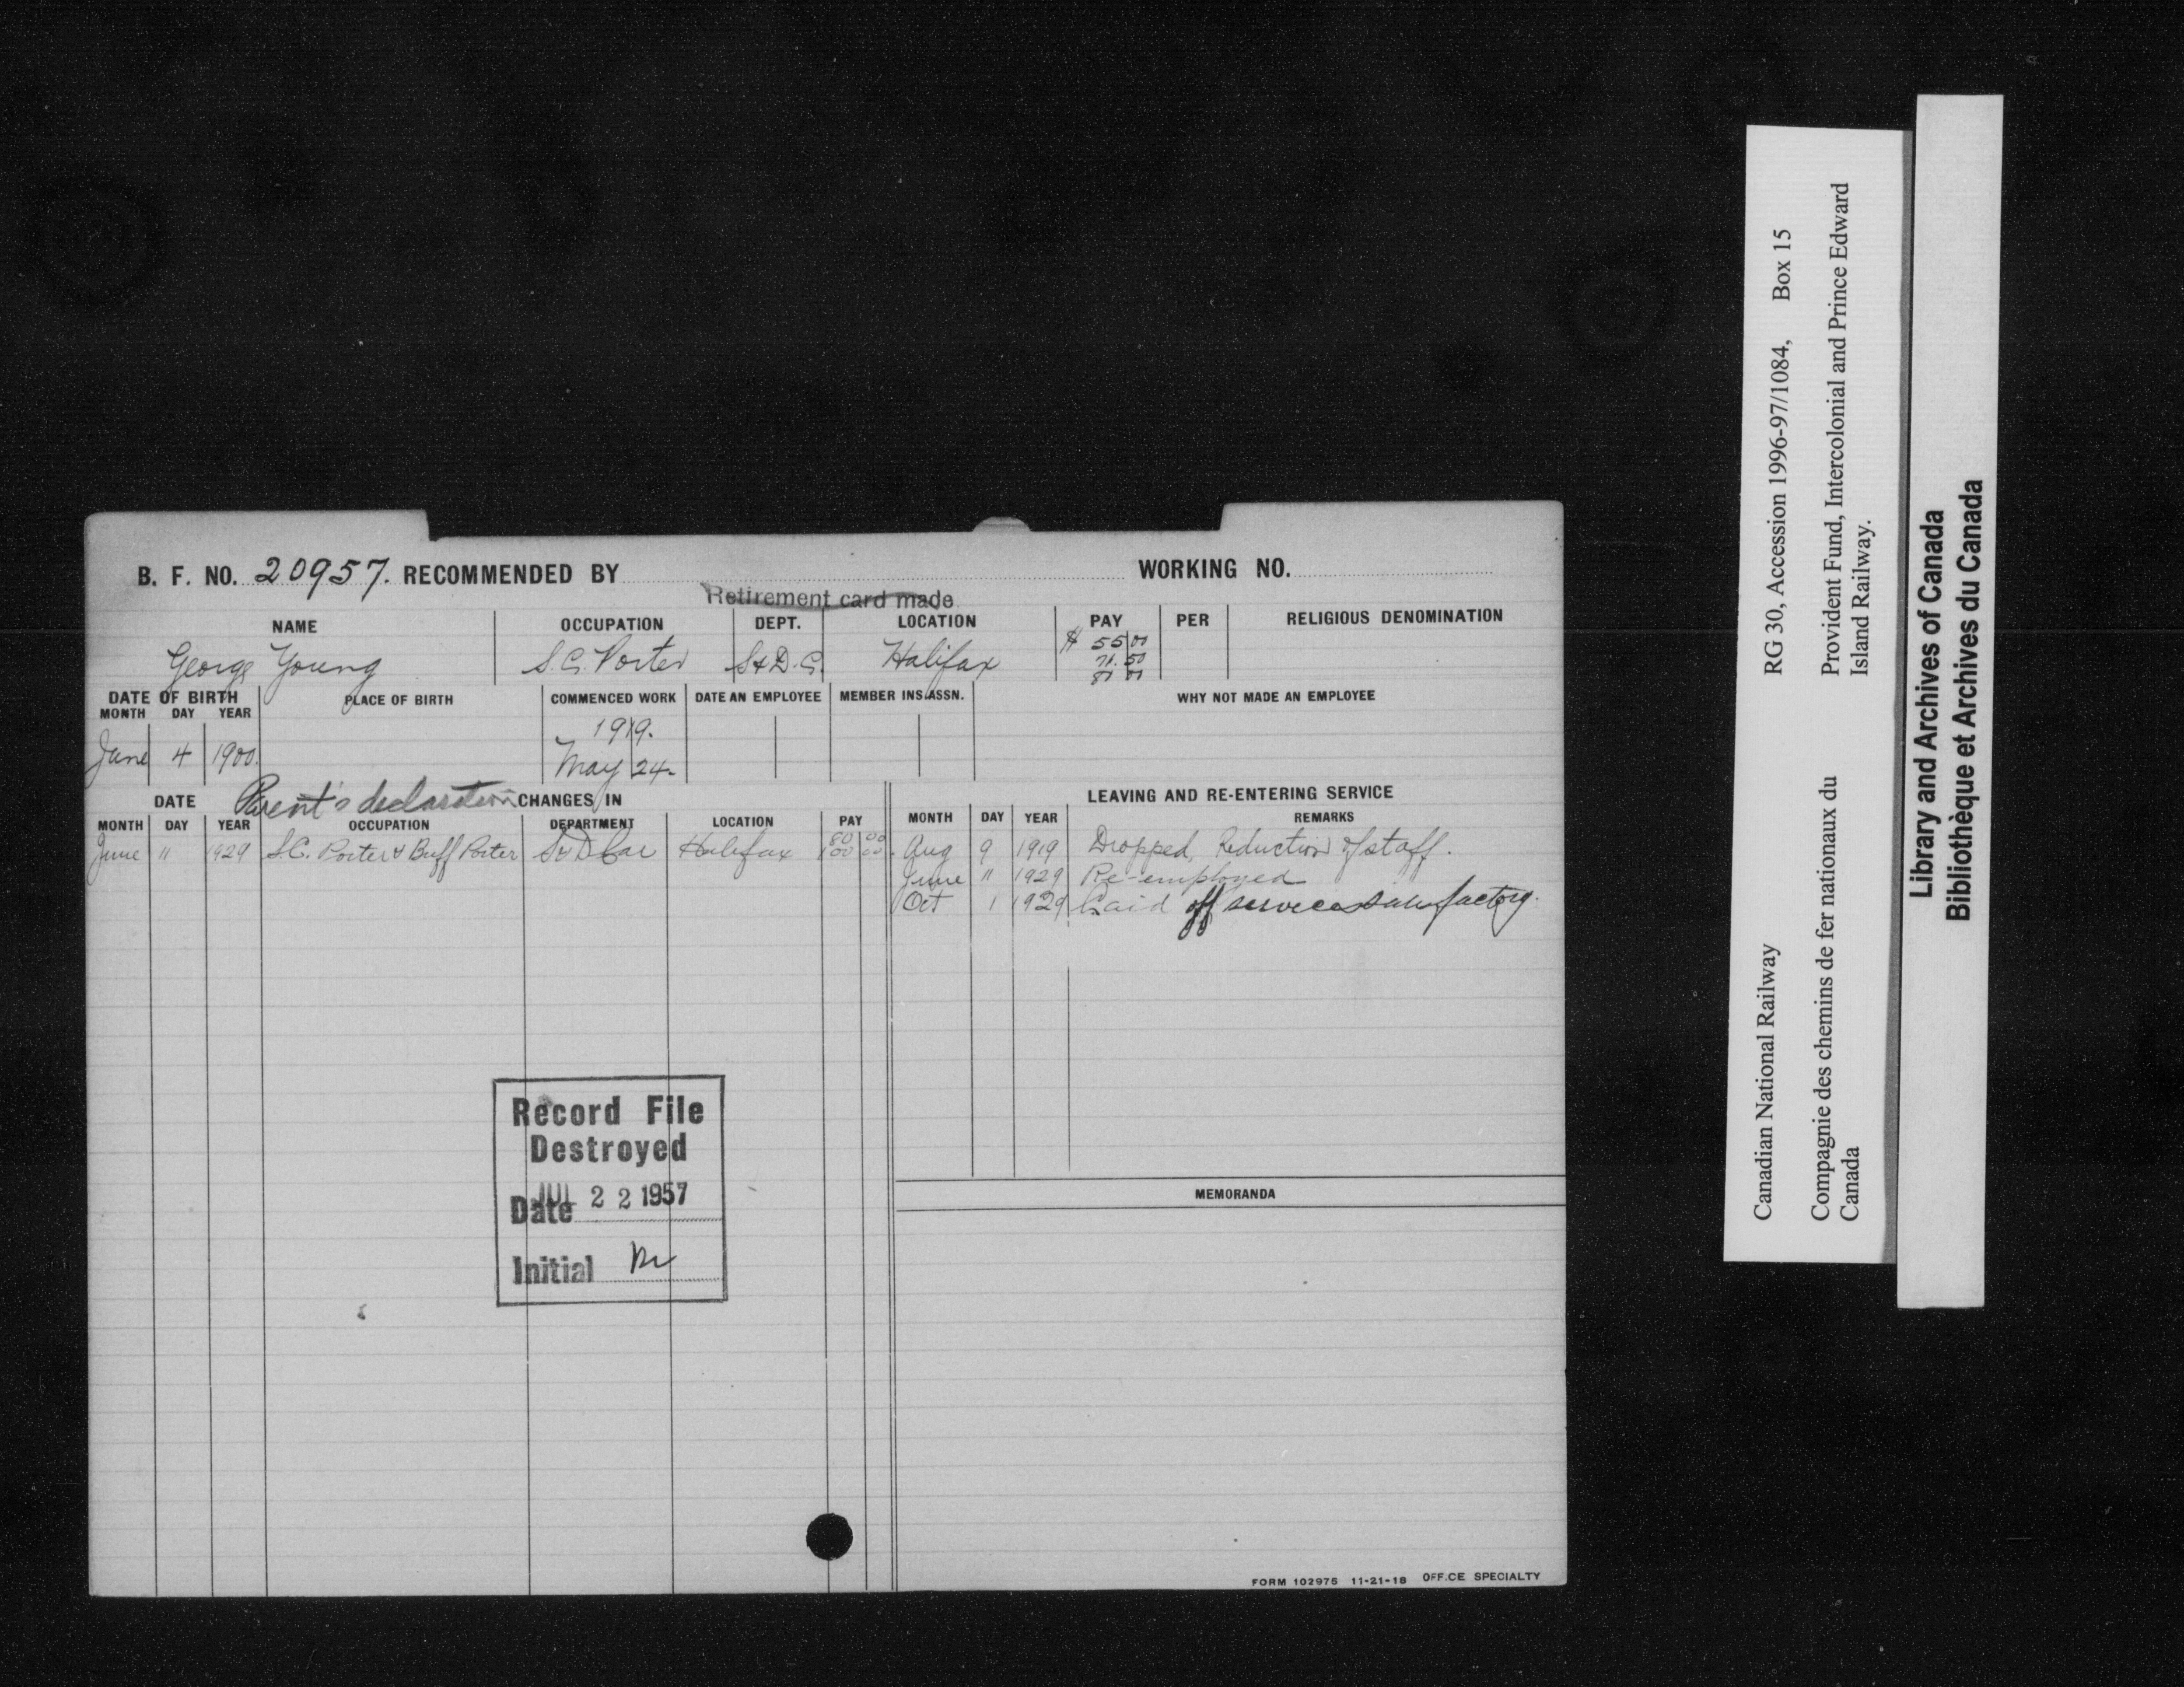 B. F. NO. 20957. RECOMMENDED BY WORKING NO.
Retirement card made
NAME OCCUPATION DEPT. LOCATION PAY PER RELIGIOUS DENOMINATION
George Young S.C. Porter S&D.C. Halifax $ 55 00
71.50
DATE OF BIRTH PLACE OF BIRTH COMMENCED WORK DATE AN EMPLOYEE MEMBER INS. ASSN. WHY NOT MADE AN EMPLOYEE
MONTH DAY YEAR
1919.
June 4 1900. May 24.
Parent's declaration
DATE CHANGES IN
MONTH DAY YEAR OCCUPATION DEPARTMENT LOCATION PAY
80 00
June 11 1929 S.C. Porter & Buff Porter S&D Car Halifax 100 00
LEAVING AND RE-ENTERING SERVICE
MONTH DAY YEAR REMARKS
Aug 9 1919 Dropped, Reduction of staff.
June 11 1929 Re-employed
Oct 1 1929 Laid off services satisfactory.
Record File
Destroyed
Date JUL 22 1957
Initial
MEMORANDA
FORM 102975 11-21-18 OFFICE SPECIALTY
Canadian National Railway RG 30, Accession 1996-97/1084, Box 15
Compagnie des chemins de fer nationaux du
Canada
Provident Fund, Intercolonial and Prince Edward
Island Railway.
Library and Archives of Canada
Bibliothèque et Archives du Canada